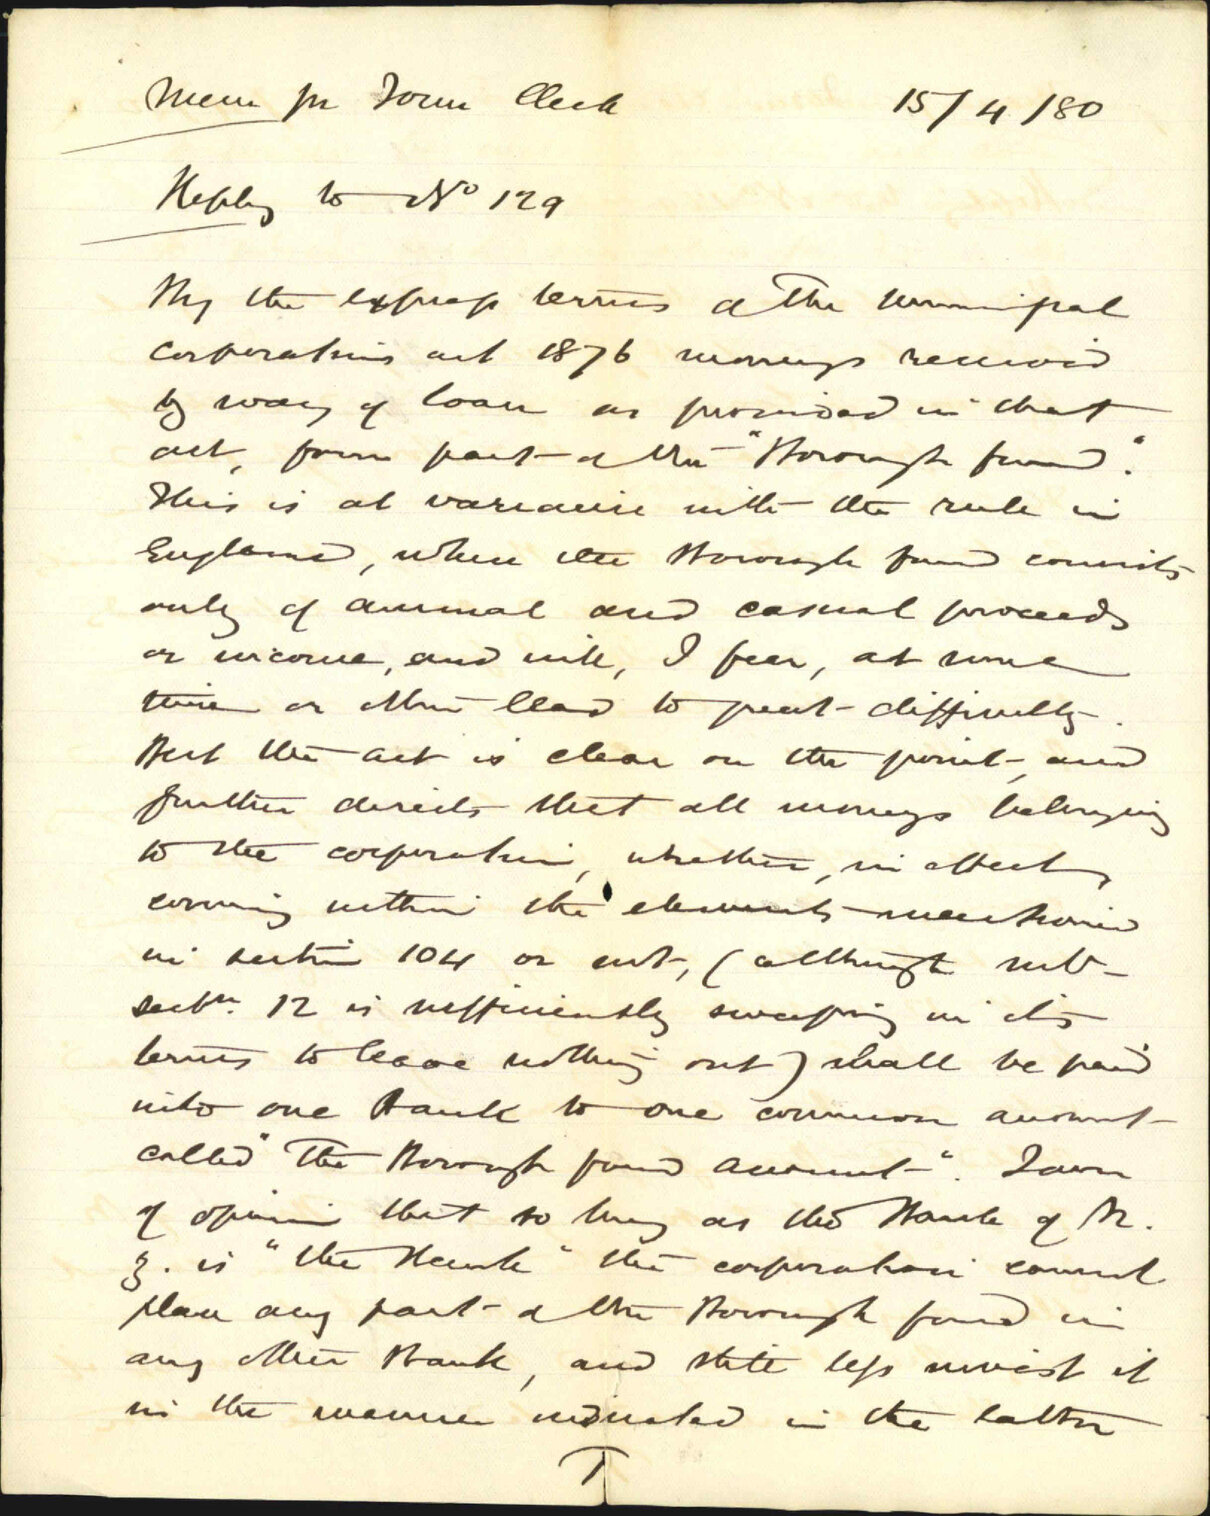 Mem for Town Clerk 15/4/80
Reply to No 129
By the express terms of the municipal
corporations act 1876 moneys received
by way of loan as provided in that
act, form part of the "Borough fund".
This is at variance with the rule in
England, where the Borough fund consists
only of annual and casual proceeds
or income, and will, I fear, at some
time or other lead to great difficulty.
But the act is clear on the point, and
further directs that all moneys belonging
to the corporation, whether, in effect,
coming within the elements mentioned
in section 104 or not, (although sub-
sectn. 12 is sufficiently sweeping in its
terms to leave nothing out) shall be paid
into one Bank to one common account
called "The Borough fund account". I am
of opinion that so long as the Bank of N.
Z. is "the Bank" the corporation cannot
place any part of the Borough fund in
any other Bank, and still less invest it
in the manner indicated in the latter